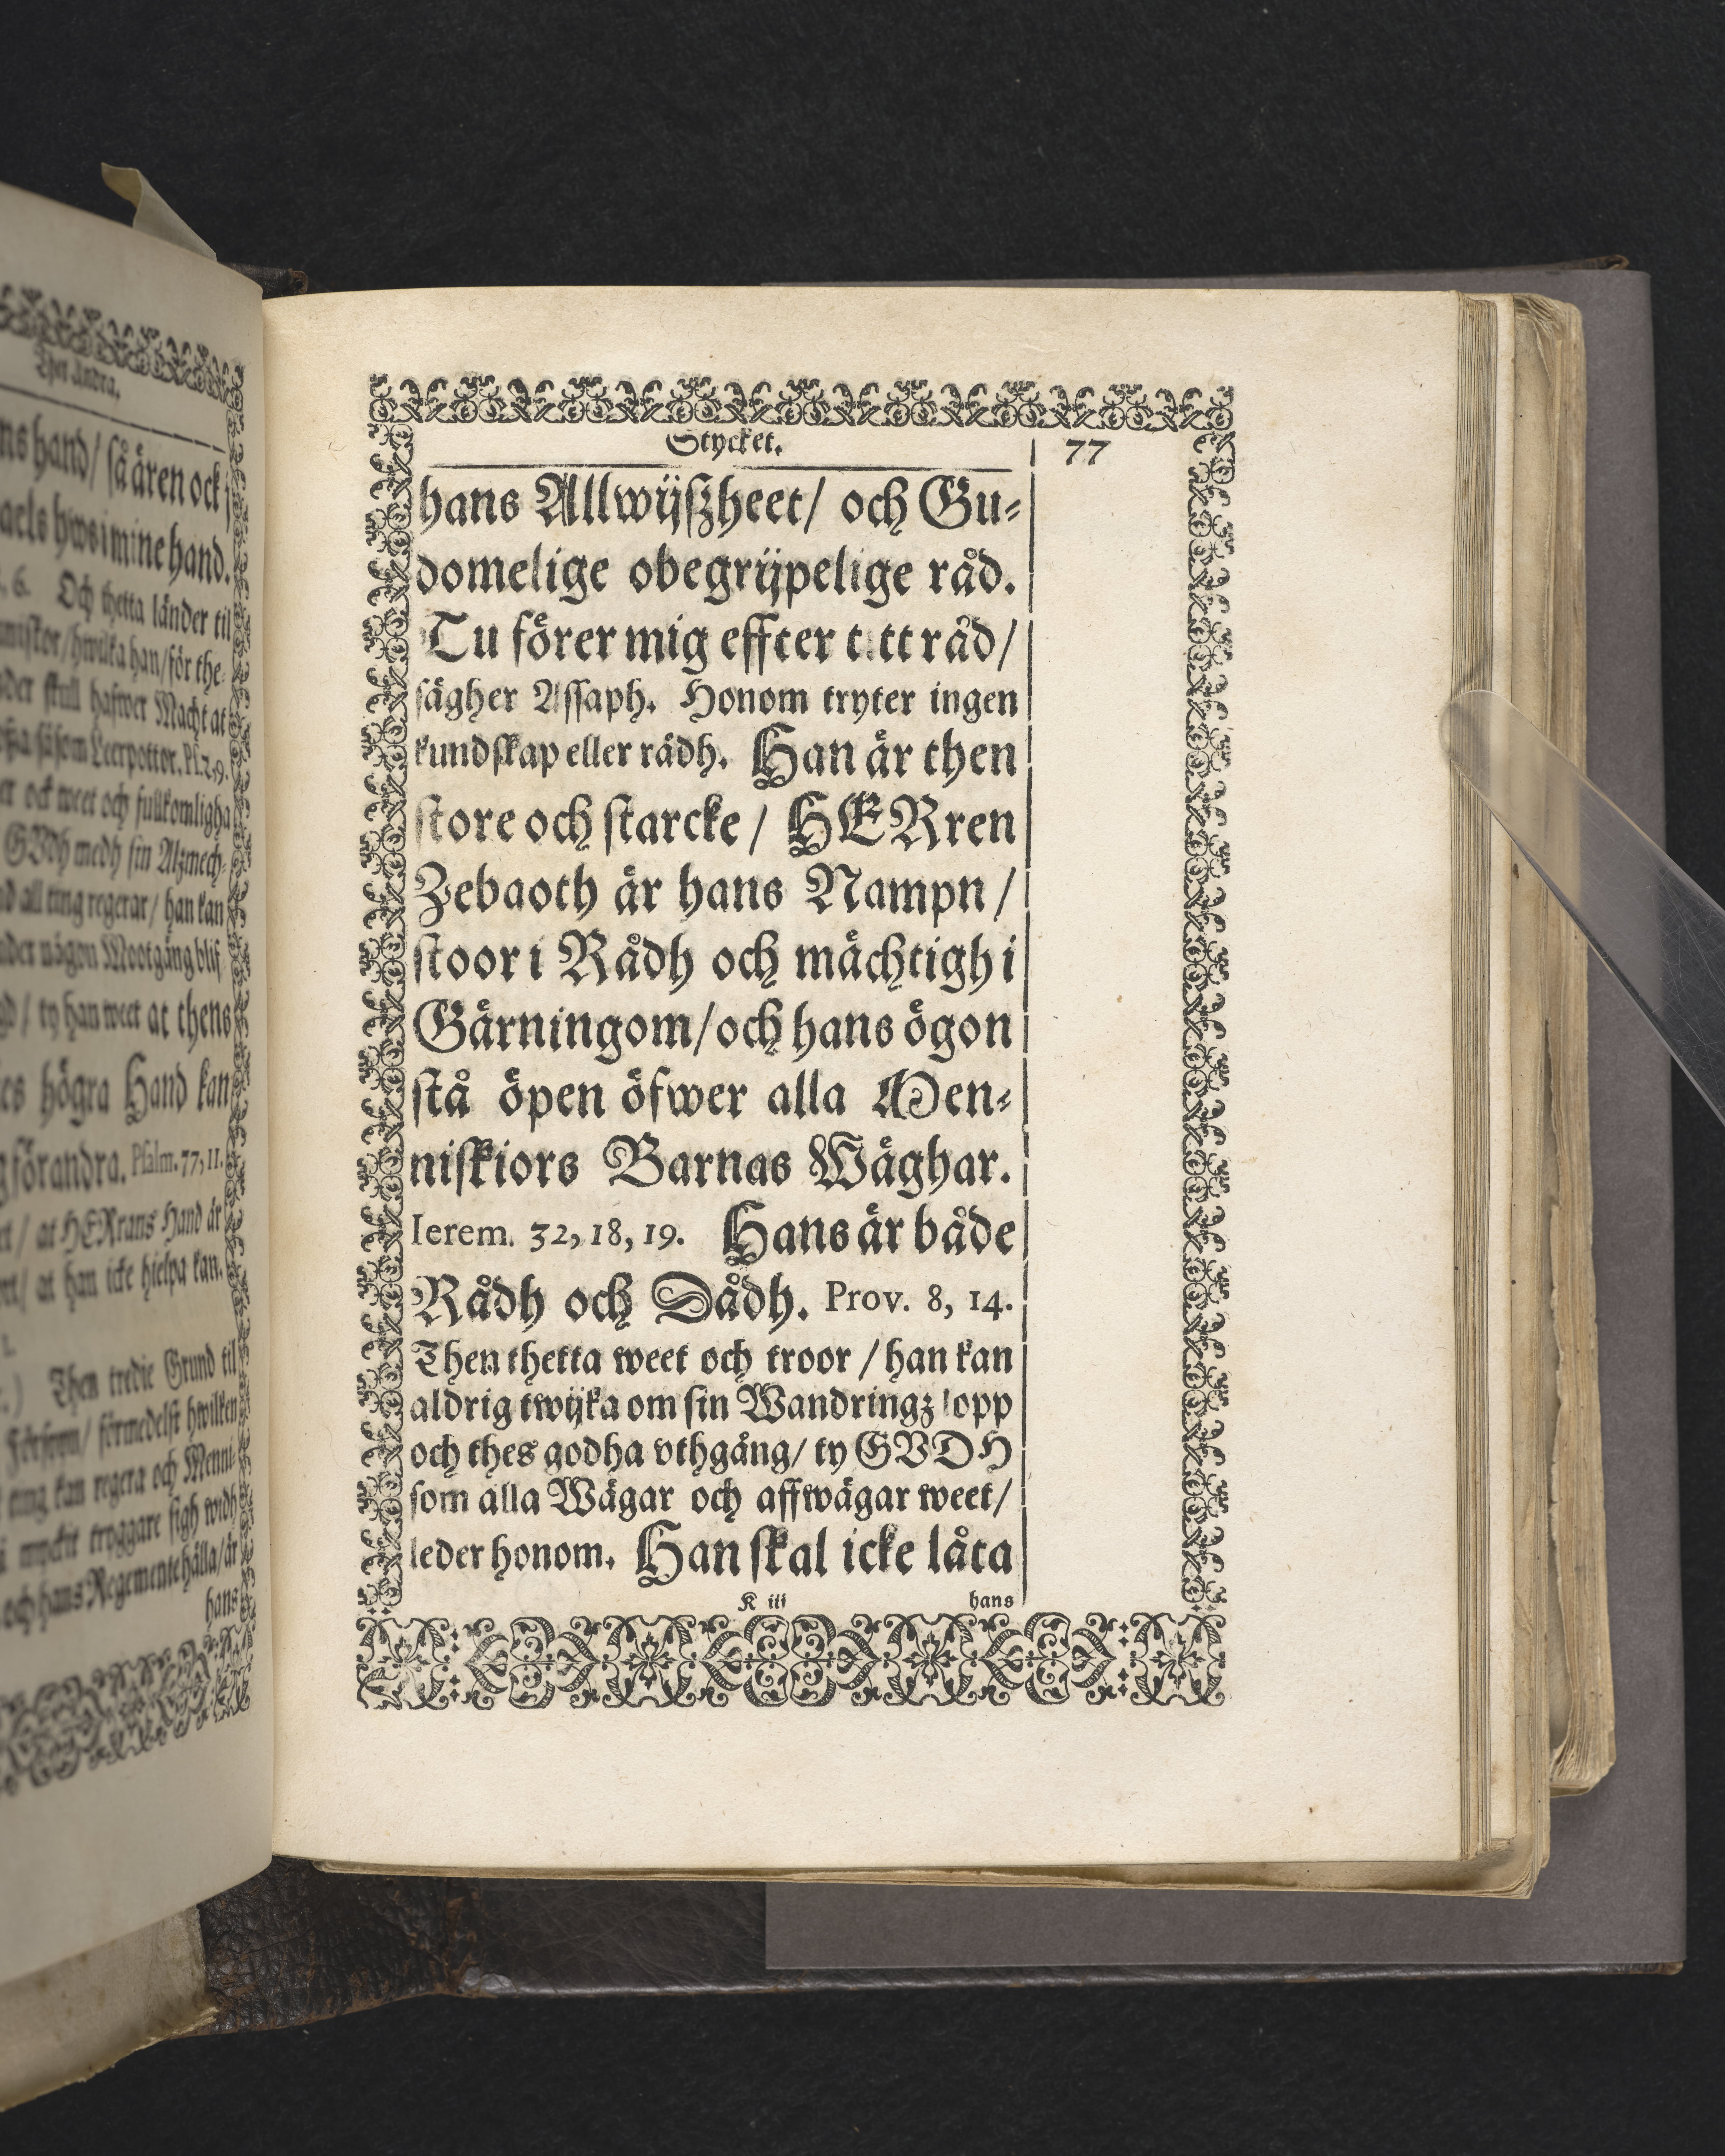 Thet Andra.
ns hand/ så ären ock
aels hws i mine hand.
6. Och thetta länder til
hwilka han/ för the
skull hafwer Macht at
såsom Leerpottor. Ps. 2, 9.
er ock weet och fullkomligha
GVdh medh sin Alzmech-
all ting regerar/ han kan
nder någon Mootgång blif
ty han weet at thens
högra Hand kan
förandra. Psalm. 77, 11.
at HERrans Hand är
at han icke hielpa kan.
Then tredie Grund til
Försyyn/ förmedelst hwilken
ting kan regera och Menni-
myckit tryggare sigh widh
och hans Regemente hålla/ är
hans
Stycket. 77
hans Allwijßheet/ och Gu-
domelige obegrijpelige råd.
Tu förer mig effter titt råd/
sägher Assaph. Honom tryter ingen
kundskap eller rådh. Han är then
store och starcke / HERren
Zebaoth är hans Nampn /
stoor i Rådh och mächtigh i
Gärningom/och hans ögon
stå öpen öfwer alla Men-
niskiors Barnas Wäghar.
Ierem. 32, 18, 19. Hans är både
Rådh och Dådh. Prov. 8, 14.
Then thetta weet och troor / han kan
aldrig twijka om sin Wandringz lopp
och thes godha vthgång/ ty GVDH
som alla Wägar och affwägar weet/
leder honom. Han skal icke låta
K iii hans